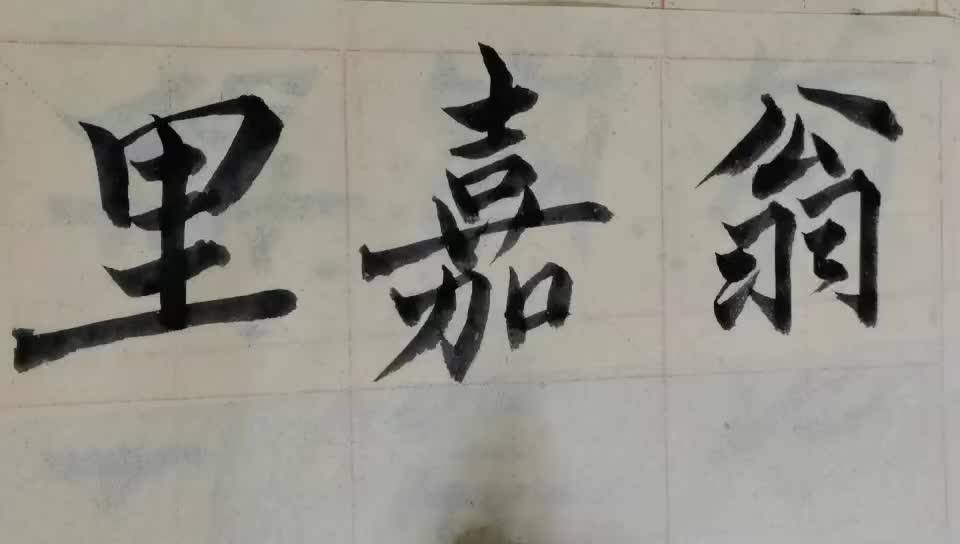 里嘉翁